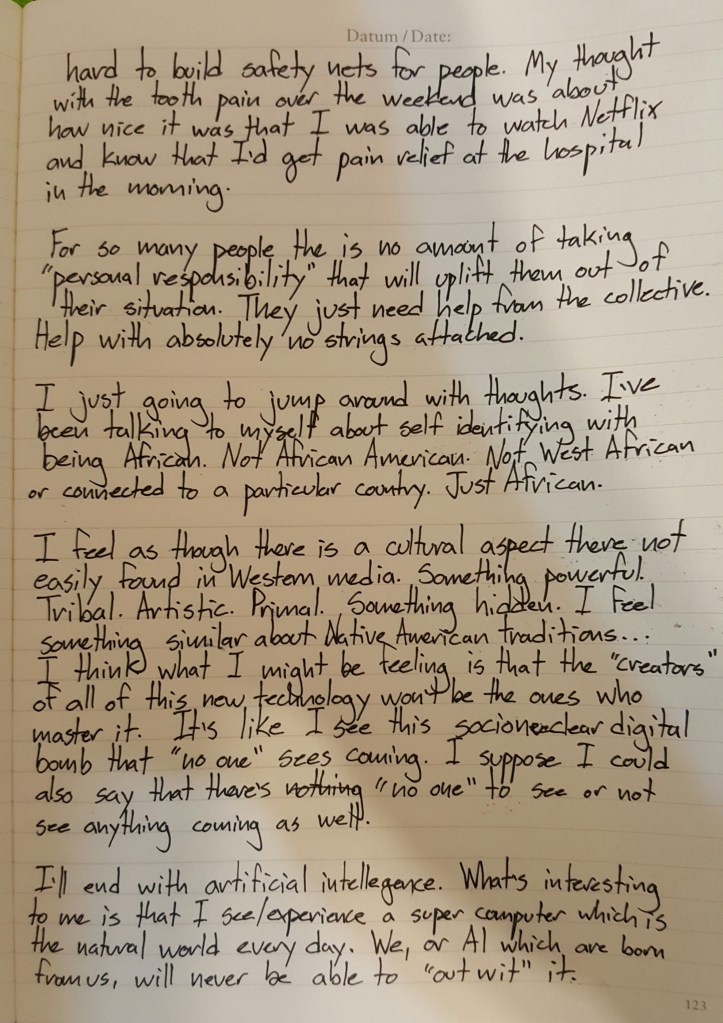 Datum / Date:
hard to build safety nets for people. My thought
with the tooth pain over the weekend was about
how nice it was that I was able to watch Netflix
and know that I'd get pain relief at the hospital
in the morning.
For so many people the is no amount of taking
"personal responsibility" that will uplift them out of
their situation. They just need help from the collective.
Help with absolutely no strings attached.
I just going to jump around with thoughts. I've
been talking to myself about self identifying with
being African. Not African American. Not West African
or connected to a particular country. Just African.
I feel as though there is a cultural aspect there not
easily found in Western media. Something powerful.
Tribal. Artistic. Primal. Something hidden. I feel
something similar about Native American traditions...
I think what I might be feeling is that the "creators"
of all of this new technology won't be the ones who
master it. It's like I see this socionuclear digital
bomb that "no one" sees coming. I suppose I could
also say that there's nothing "no one" to see or not
see anything coming as well.
I'll end with artificial intellegence. What's interesting
to me is that I see/experience a super computer which is
the natural world every day. We, or AI which are born
from us, will never be able to "out wit" it.
123